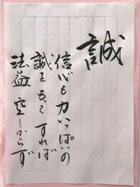 誠
信心も力いっぱいの
誠をもってすれば
法益空しからず